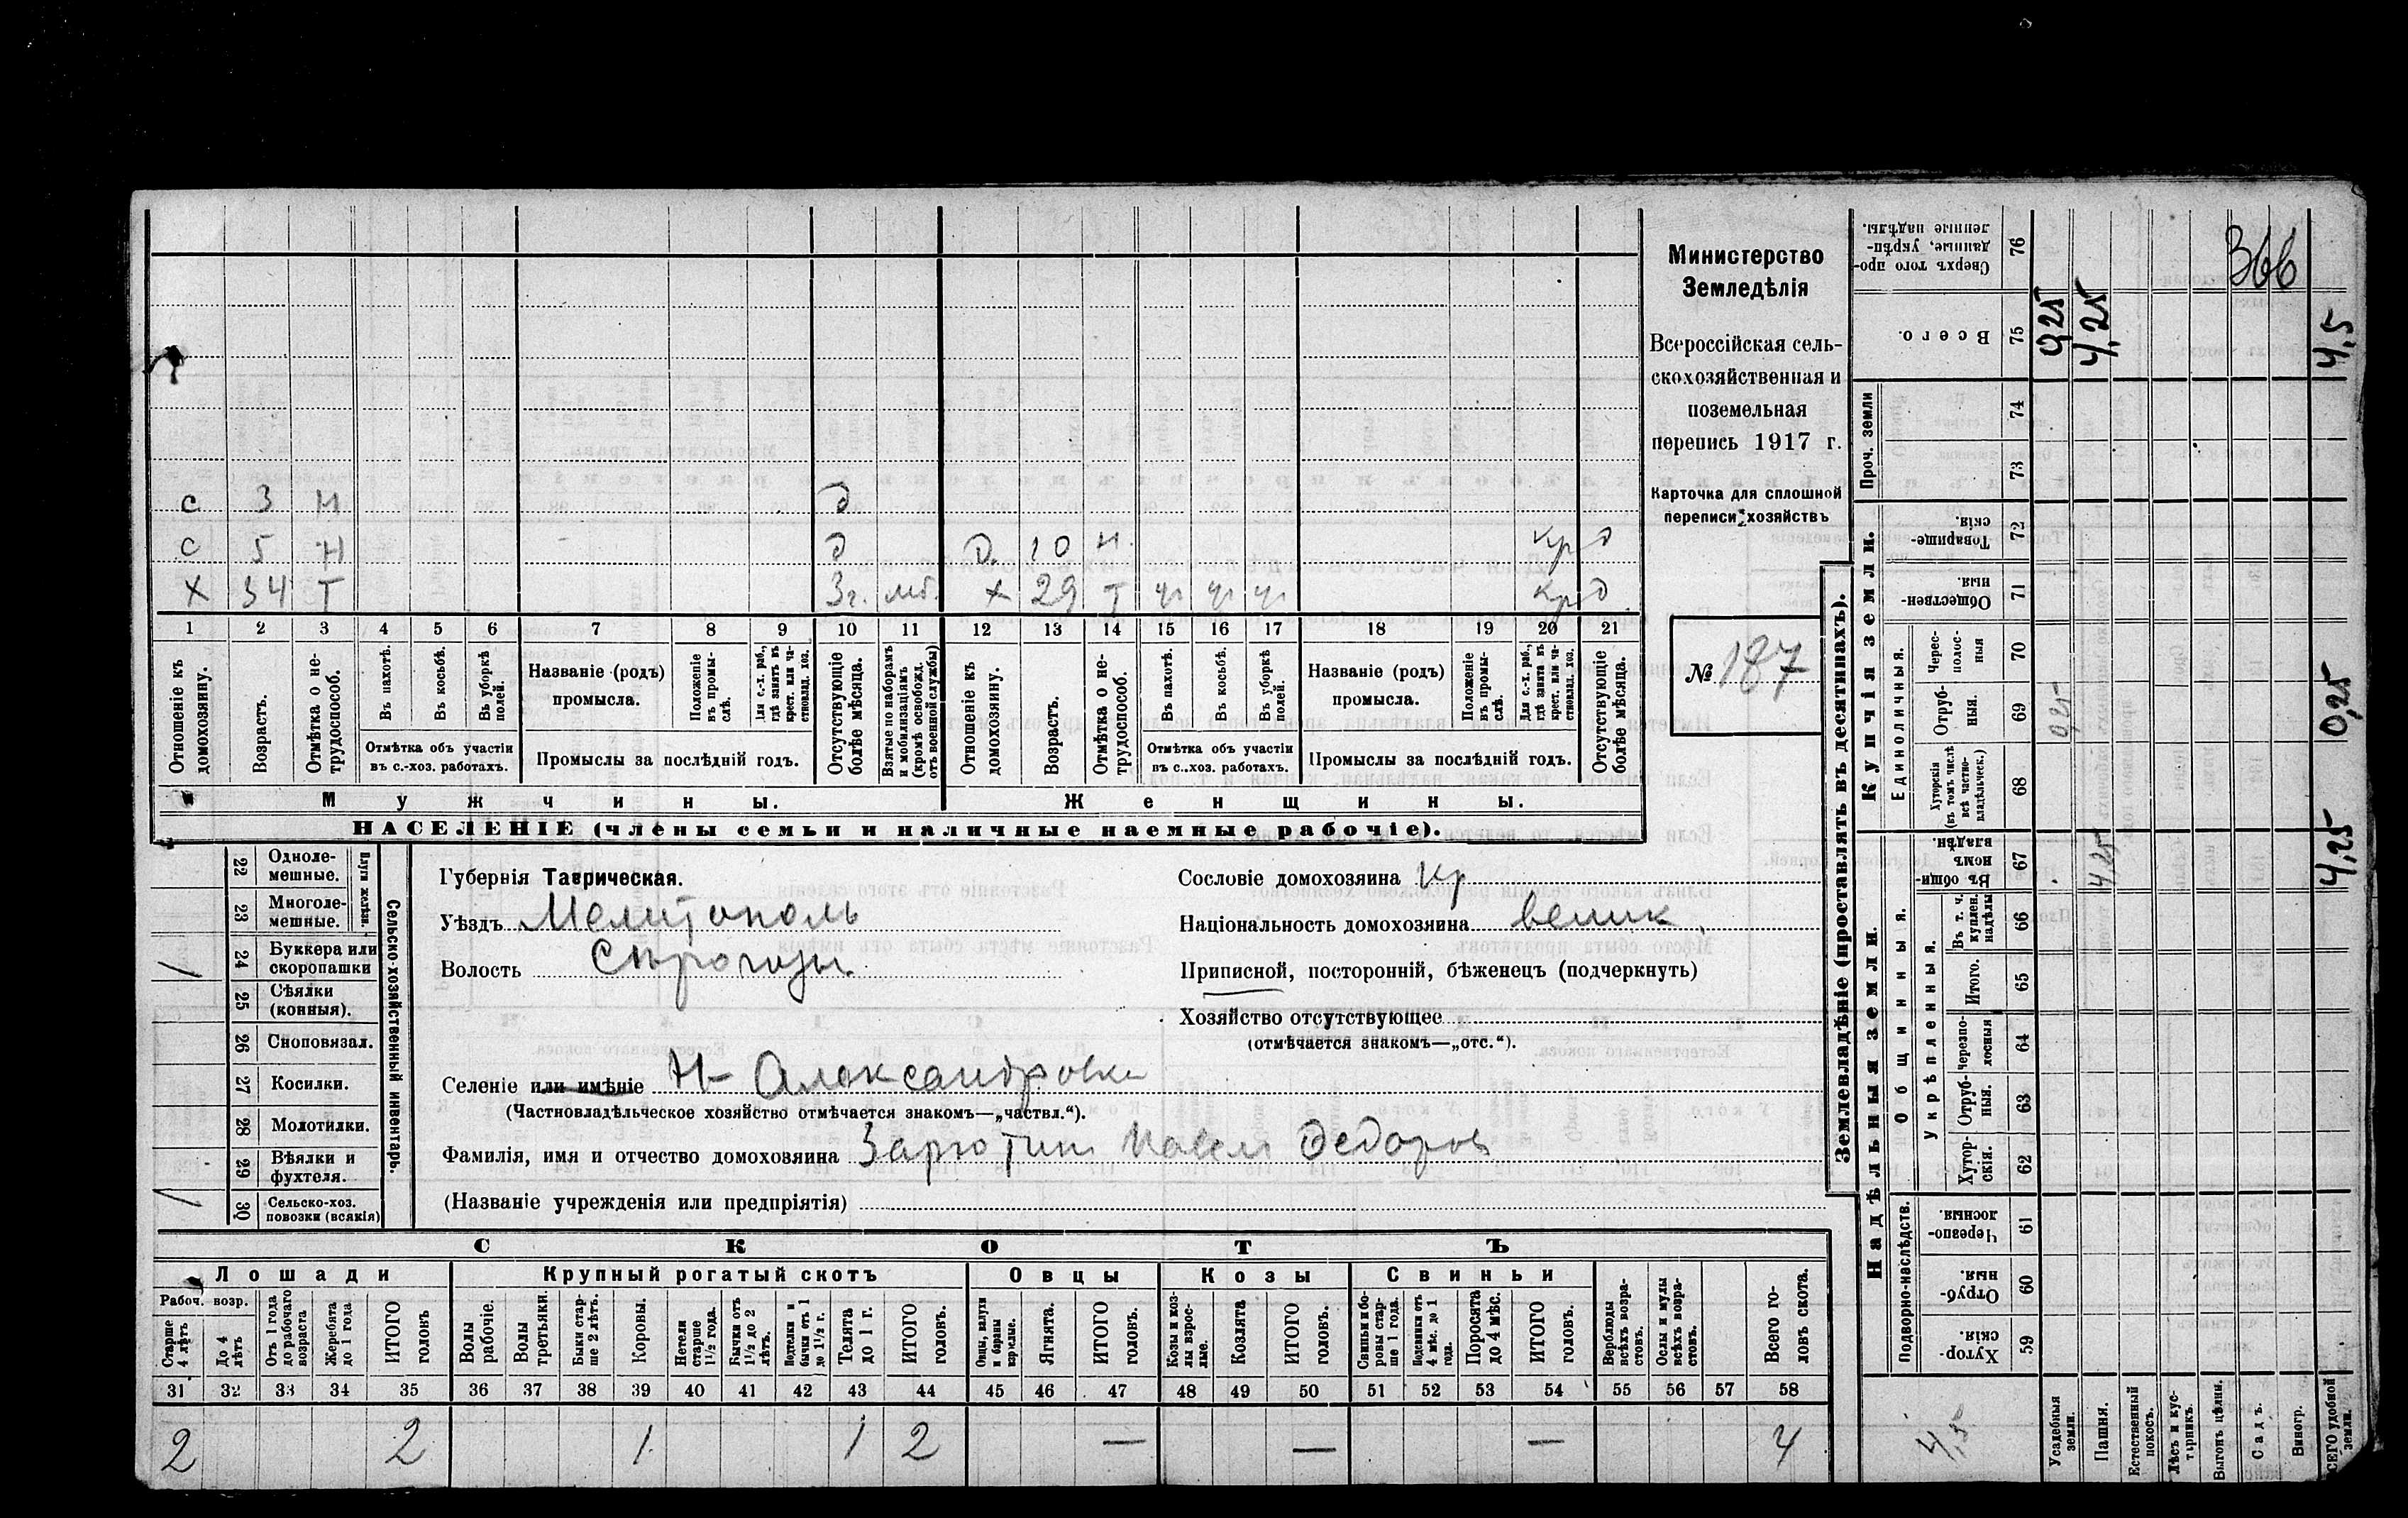 с 3 н д
с 5 н д Д. 10 н. кр д
х 34 т 3 г. мб. х 29 т ч ч ч кр д
1 2 3 4 5 6 7 8 9 10 11 12 13 14 15 16 17 18 19 20 21
Отношеніе къ домохозяину.
Возрастъ.
Отмѣтка о нетрудоспособ.
Въ пахотѣ.
Въ косьбѣ.
Въ уборкѣ полей.
Отмѣтка объ участіи въ с.-хоз. работахъ.
Названіе (родъ) промысла.
Положеніе въ промыслѣ.
Для с.-х. раб., гдѣ занятъ въ крест. или частновлад. хоз.
Промыслы за послѣдній годъ.
Отсутствующіе болѣе мѣсяца.
Взятые по наборамъ и мобилизаціямъ (кромѣ освобожд. отъ военной службы)
Отношеніе къ домохозяину.
Возрастъ.
Отмѣтка о нетрудоспособ.
Въ пахотѣ.
Въ косьбѣ.
Въ уборкѣ полей.
Отмѣтка объ участіи въ с.-хоз. работахъ.
Названіе (родъ) промысла.
Положеніе въ промыслѣ.
Для с.-х. раб., гдѣ занята въ крест. или частновлад. хоз.
Промыслы за послѣдній годъ.
Отсутствующіе болѣе мѣсяца.
Мужчины.
Женщины.
НАСЕЛЕНІЕ (члены семьи и наличные наемные рабочіе).
Министерство
Земледѣлія
Всероссійская сель-
скохозяйственная и
поземельная
перепись 1917 г.
Карточка для сплошной
переписи хозяйствъ
№ 187
22 Одноле-
мешные.
23 Многоле-
мешные.
Плуги желѣзн.
24 Буккера или
скоропашки /
25 Сѣялки
(конныя).
26 Сноповязал.
27 Косилки.
28 Молотилки.
29 Вѣялки и
фухтеля.
30 Сельско-хоз.
повозки (всякія) /
Сельско-хозяйственный инвентарь.
Губернія Таврическая.
Уѣздъ Мелитополь
Волость Сирогозы
Селеніе или имѣніе Н-Александровка
(Частновладѣльческое хозяйство отмѣчается знакомъ—„частвл.“).
Фамилія, имя и отчество домохозяина Зарютин Павел Федоров
(Названіе учрежденія или предпріятія)
Сословіе домохозяина кр
Національность домохозяина велик.
Приписной, посторонній, бѣженецъ (подчеркнуть)
Хозяйство отсутствующее
(отмѣчается знакомъ—„отс.“).
СКОТЪ
Лошади
Крупный рогатый скотъ
Овцы
Козы
Свиньи
Рабоч. возр.
Старше 4 лѣтъ
До 4 лѣтъ
Отъ 1 года до рабочаго возраста
Жеребята до 1 года
ИТОГО головъ
Волы рабочіе.
Волы третьяки.
Быки старше 2 лѣтъ.
Коровы.
Нетели старше 1½ года.
Бычки отъ 1½ до 2 лѣтъ.
Подтелки и бычки отъ 1 до 1½ г.
Телята до 1 г.
ИТОГО головъ.
Овцы, валухи и бараны взрослые.
Ягнята.
ИТОГО головъ.
Козы и козлы взрослые.
Козлята
ИТОГО головъ.
Свиньи и боровы старше 1 года.
Подсвинки отъ 4 мѣс. до 1 года.
Поросята до 4 мѣс.
ИТОГО головъ.
Верблюды всѣхъ возрастовъ.
Ослы и мулы всѣхъ возрастовъ.
Всего головъ скота.
31 32 33 34 35 36 37 38 39 40 41 42 43 44 45 46 47 48 49 50 51 52 53 54 55 56 57 58
2 2 1 1 2 — — — 4
Землевладѣніе (проставлять въ десятинахъ).
Сверхъ того проданные, укрѣпленные надѣлы. 76
366
Всего. 75 0,25 4,25 4,5
Проч. земли 74
73
Купчія земли.
Товарищескія. 72
Общественныя 71
Единоличныя.
Череспо­лосныя 70
Отрубныя. 69 0,25 0,25
Хуторскія (въ томъ числѣ всѣ частновладѣльческ.) 68
Надѣльныя земли.
Общинныя.
Въ общинномъ владѣн. 67 4,25 4,25
Укрѣпленныя.
Въ т. ч. куплен. надѣлы 66
Итого. 65
Черезполосныя 64
Отрубныя. 63
Хуторскія. 62
Подворно-наслѣдств.
Черезполосныя. 61
Отрубныя. 60
Хуторскія. 59
4,5
Усадебныя земли.
Пашня.
Естественный покосъ.
Лѣсъ и кустарникъ.
Выгонъ цѣлин.
Садъ.
Виногр.
ВСЕГО удобной земли.